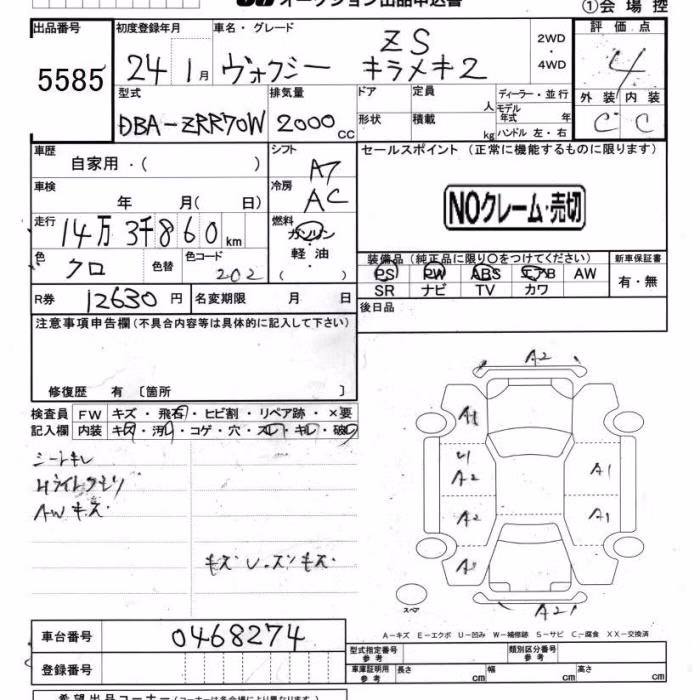 オークション出品申込書
①会場控
出品番号 初度登録年月 車名・グレード 2WD 4WD 評価点
5585 24 1月 ヴォクシー ZS キラメキ2 4
型式 排気量 ドア 定員 人 ディーラー・並行 外装 内装
DBA-ZRR70W 2000cc 形状 積載 kg モデル年式 年 ハンドル 左・右 C C
車歴 自家用・( ) シフト A7 セールスポイント (正常に機能するものに限ります)
車検 年 月( 日) 冷房 AC
NOクレーム・売切
走行 14万3千860km 燃料 ガソリン 軽油 ( )
色 クロ 色替 色コード 202
装備品 (純正品に限り○をつけてください) 新車保証書
PS PW ABS エアB AW 有・無
SR ナビ TV カワ
R券 12630円 名変期限 月 日 後日品
注意事項申告欄(不具合内容等は具体的に記入して下さい)
修復歴 有 〔箇所 〕
検査員 FW キズ・飛石・ヒビ割・リペア跡・×要
記入欄 内装 キズ・汚レ・コゲ・穴・スレ・キレ・破レ
シートキレ
Hライトクモリ
AWキズ
A2
A1
A2
A1
A2
A1
A2
スペア
A-キズ E-エクボ U-凹み W-補修跡 S-サビ C-腐食 XX-交換済
車台番号 0468274 型式指定番号 参考 類別区分番号 参考
登録番号 車庫証明用 参考 長さ cm 幅 cm 高さ cm
希望出品コーナー (コーナーは各会場により異なります)